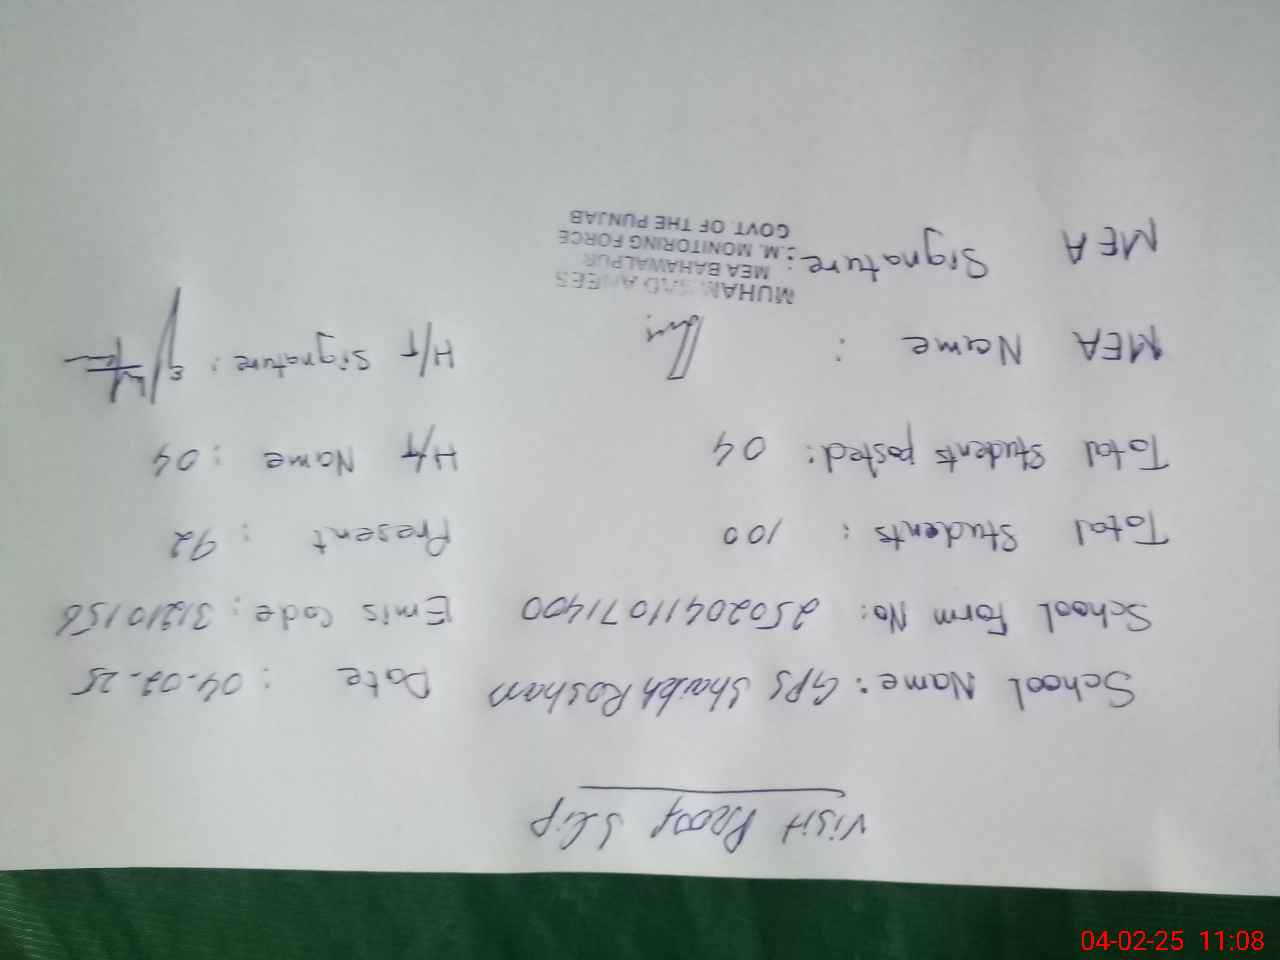 Visit Proof Slip
School Name: GPS Shaikh Roshan Date : 04-02-25
School Form No: 25020411071400 Emis Code: 31210156
Total Students : 100 Present : 92
Total Students posted: 04 H/T Name : 04
MEA Name : H/T Signature :
MUHAMMAD ANEES
MEA BAHAWALPUR
MEA Signature: C.M. MONITORING FORCE
GOVT. OF THE PUNJAB
04-02-25 11:08